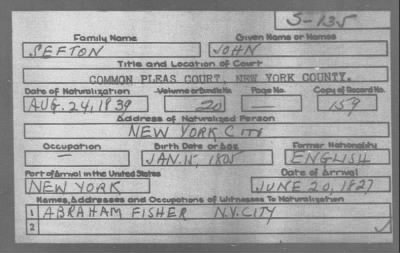 S-135
Family Name Given Name or Names
SEFTON JOHN
Title and Location of Court
COMMON PLEAS COURT, NEW YORK COUNTY.
Date of Naturalization Volume or Bundle No. Page No. Copy of Record No.
AUG. 24, 1839 20 — 159
Address of Naturalized Person
NEW YORK CITY
Occupation Birth Date or Age Former Nationality
— JAN. 15, 1805 ENGLISH
Port of Arrival in the United States Date of Arrival
NEW YORK JUNE 20, 1827
Names, Addresses and Occupations of Witnesses To Naturalization
1 ABRAHAM FISHER N.Y. CITY
2